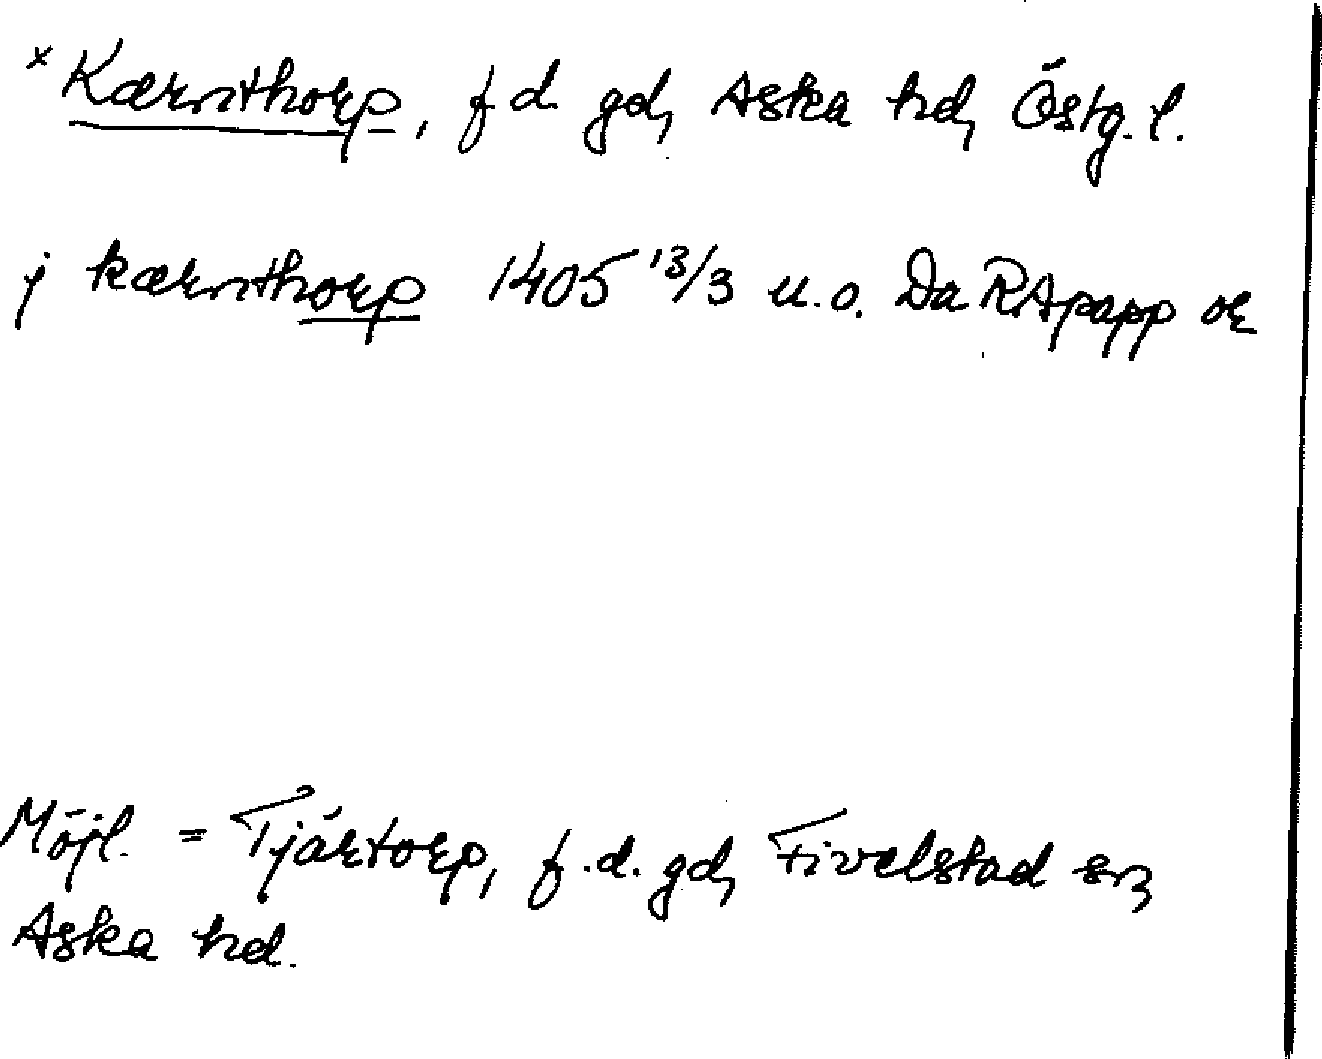 × Kærnthorp, f d. gd, Aska hd, Östg. l.
j kærnthorp 1405 13/3 u.o. Da RApapp or
Möjl. = Tjärtorp, f.d. gd, Fivelstad sn,
Aska hd.